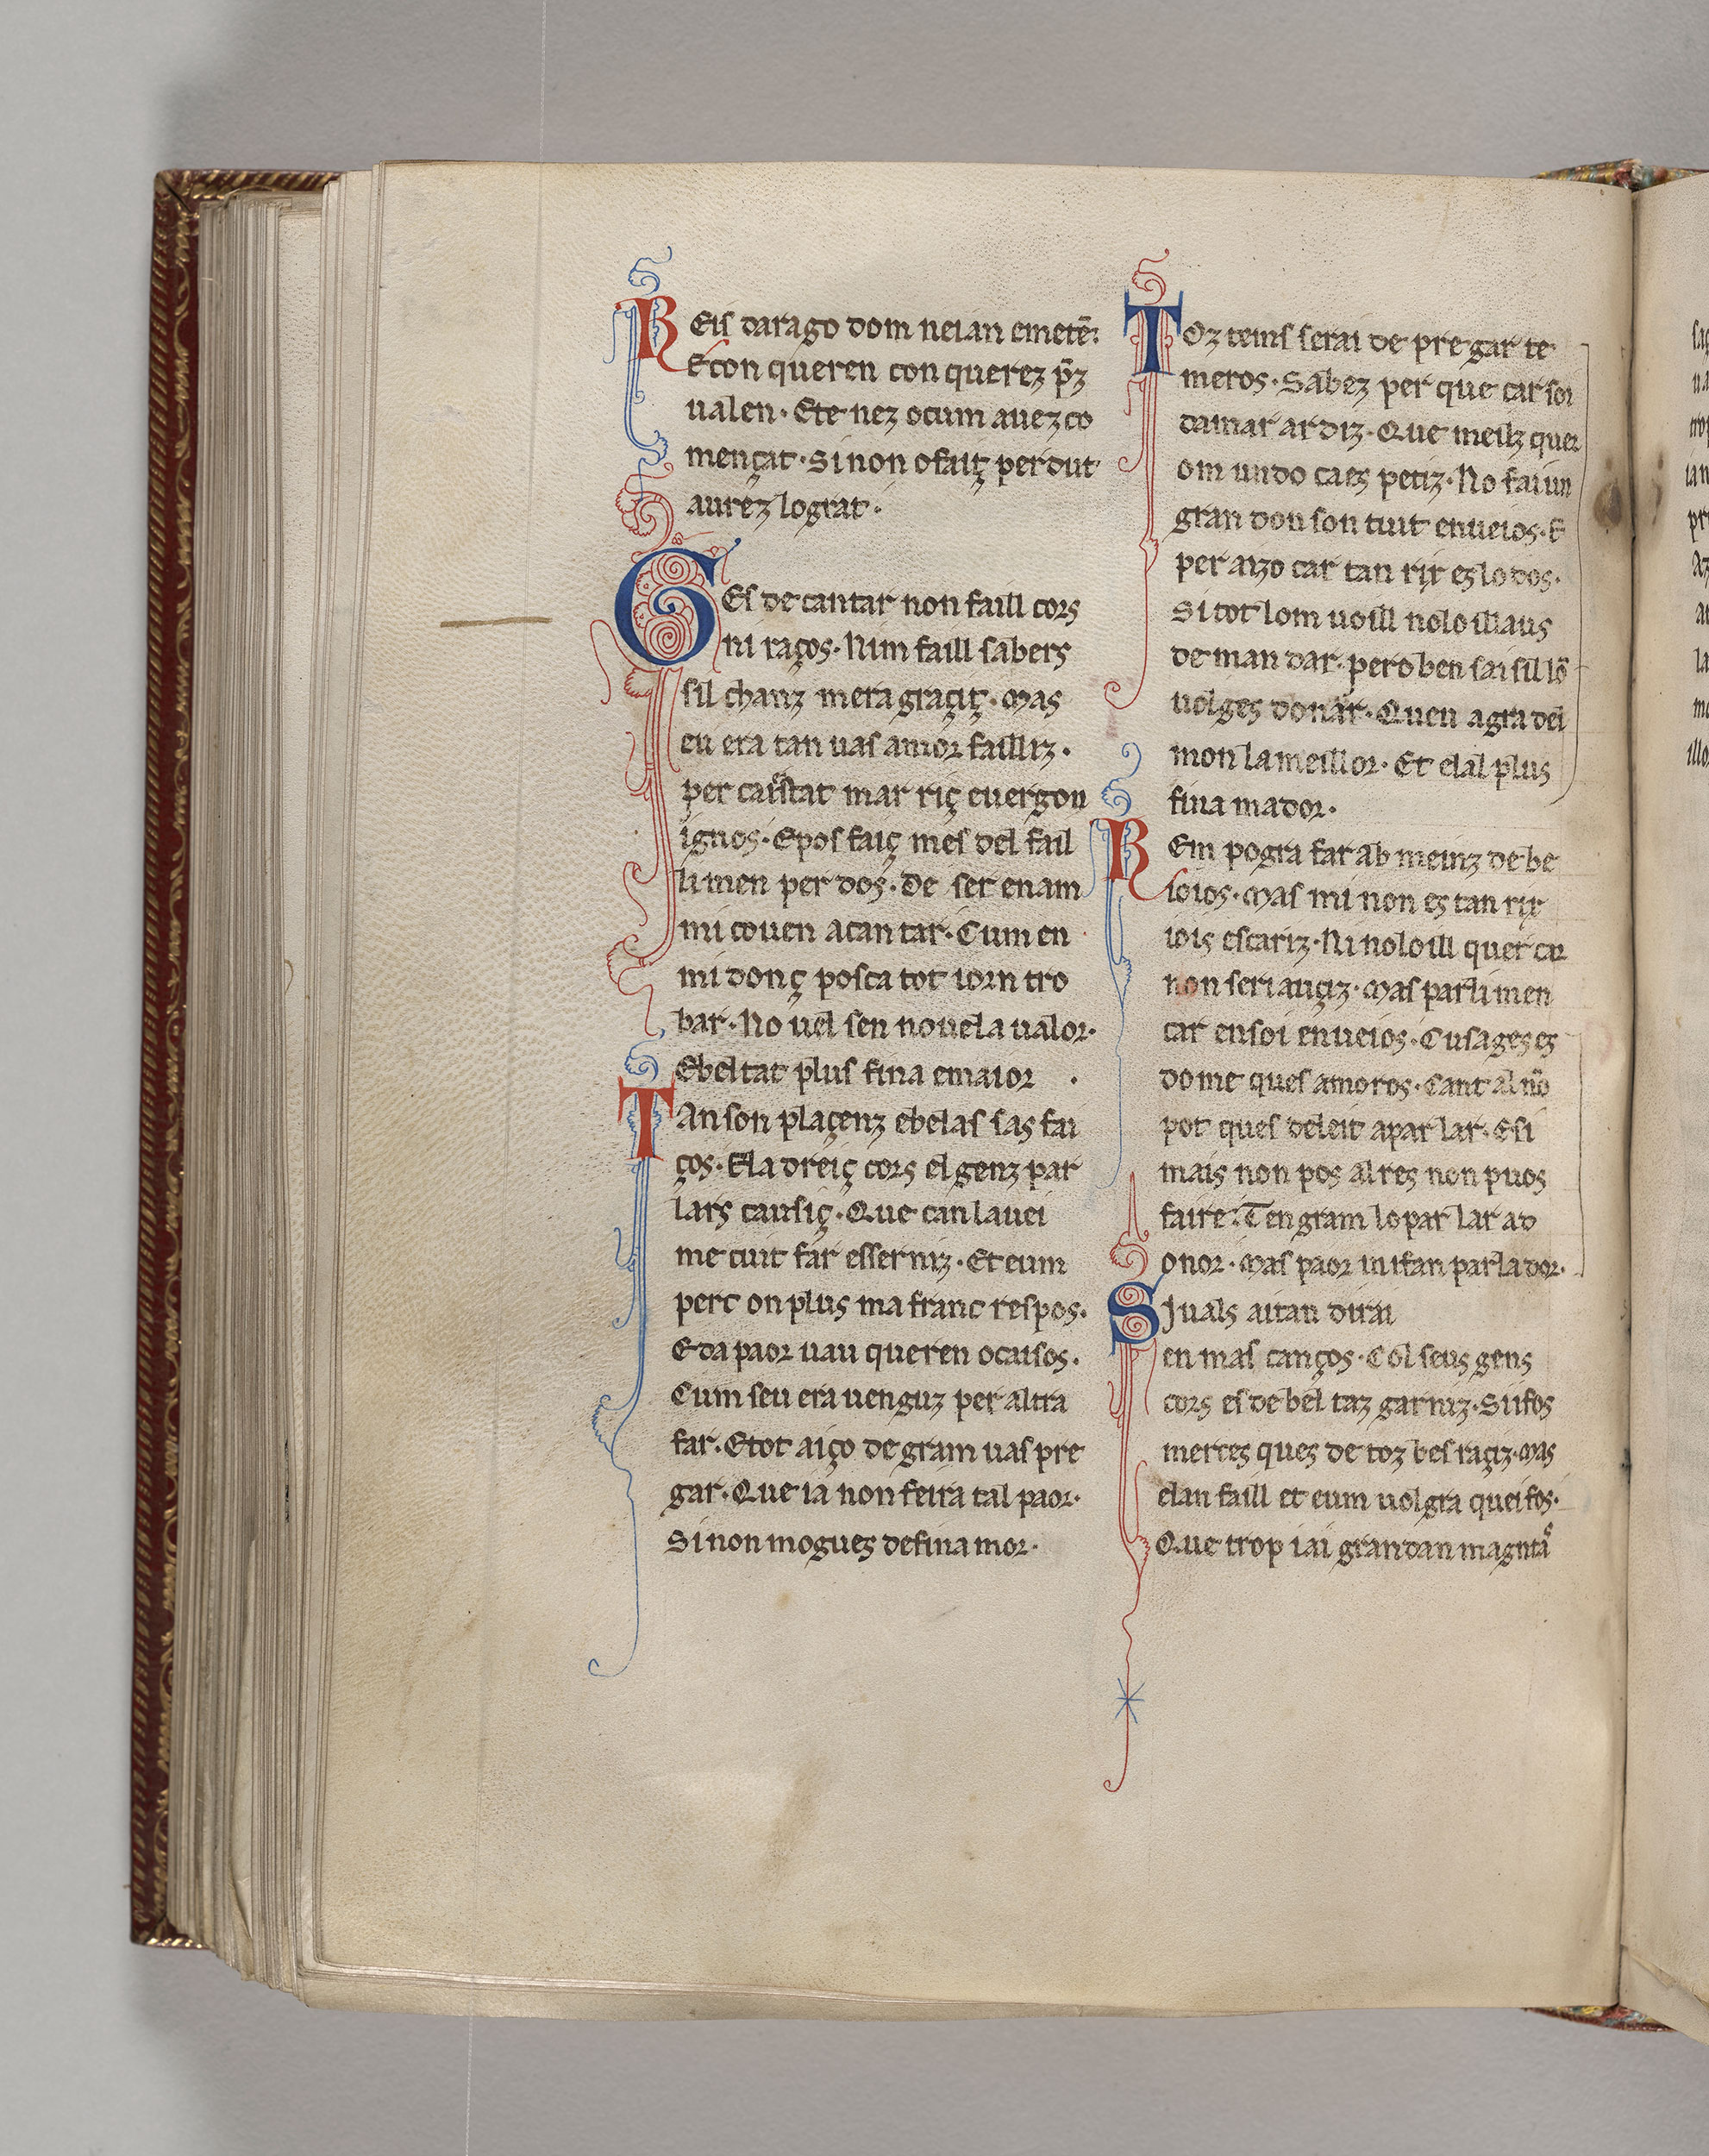 REis darago dom neian emetē:
Econ queren con querez p̃z
ualen· Ete nez ocum auez co
mençat· Si non o faiç perdut
aurez lograt·
GEs de cantar non faill cors
ni raços· Nim faill sabers
sil chanz mera graçiç· Mas
eu era tan uas amor failliz·
per caistat mar riç euergon
ignos· Epos faiç mes del fail
limen per dos· De ser enam
mi couen acantar· Cum en
mi donç posca tot iorn tro
bar· No uel sen nouela ualor·
Ebeltat plus fina emaior ·
TAn son plaçenz ebelas sas fai
ços· Ela dreiç cors el genz par
lars causiç· Que can lauei
me cuit far esserniz· Et eum
perc on plus ma franc respos·
E da paor uau queren ocaisos·
Cum seu era uenguz per altra
far· Etot aiço de gram uas pre
gar· Que ia non feira tal paor·
Si non mogues de fina mor·
TOz tems serai de pre gar te
meros· Sabez per que car soi
damar ardiz· Que meilz quer
om un do caes petiz· No fai un
gran don son tuit enueios· E
per aizo car tan rir es lo dos·
Si tot lom uoill nolo illaus
de man dar· pero ben sai sil lo᷑
uolges donar· Quen agra del
mon la meillor· Et elal plus
fina mador·
REin pogra far ab meinz de be
ioios· Mas mi non es tan rir
iois escariz· Ni nolo ill quer car
non seri auçiz· Mas parli men
car ensoi enueios· Cusages es
dome ques amoros· Cant al nō
pot ques deleit apar lar· E si
mais non pos al res non puos
faire· Ten gram lo par lar ad
onor· Mas paor ni ifan parlador·
SIuals aitan dirai
en mas canços· Col seus gens
cors es de bel taz garniz· Sii fos
merces ques de toz bes raçiz· Mas
elan faill et eum uolgra quei fos·
Que trop iai gran dan magnta᷑